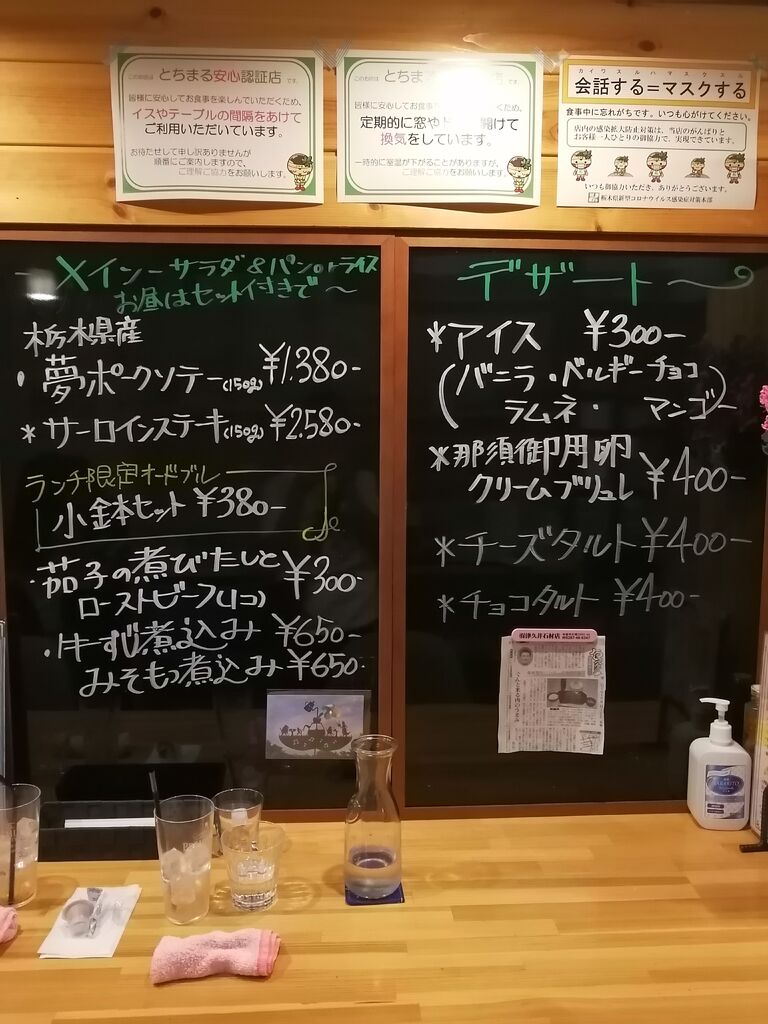 このお店は とちまる安心認証店 です。
皆様に安心してお食事を楽しんでいただくため、
イスやテーブルの間隔をあけて
ご利用いただいています。
お待たせして申し訳ありませんが
順番にご案内しますので、
ご理解ご協力をお願いします。
このお店は とちまる 店 です。
皆様に安心してお食事 くため、
定期的に窓や 開けて
換気をしています。
一時的に室温が下がることがありますが、
ご理解ご協力をお願いします。
カイワスルハマスクスル
会話する=マスクする
食事中に忘れがちです。いつも心がけてください。
店内の感染拡大防止対策は、当店のがんばりと
お客様一人ひとりの御協力で、実現できています。
いつも御協力いただき、ありがとうございます。
栃木県新型コロナウイルス感染症対策本部
メインーサラダ&パンorライス
お昼はセット付きで〜
栃木県産
・夢ポークソテー(150g) ¥1.380-
*サーロインステーキ(150g) ¥2.580-
ランチ限定オードブル
小鉢セット ¥380-
・茄子の煮びたしと
ローストビーフ(1コ) ¥300-
・牛すじ煮込み ¥650-
みそもつ煮込み ¥650-
デザート〜
*アイス ¥300-
(バニラ・ベルギーチョコ
ラムネ・ マンゴー)
*那須御用卵
クリームブリュレ ¥400-
*チーズタルト ¥400-
*チョコタルト ¥400-
㈲津久井石材店